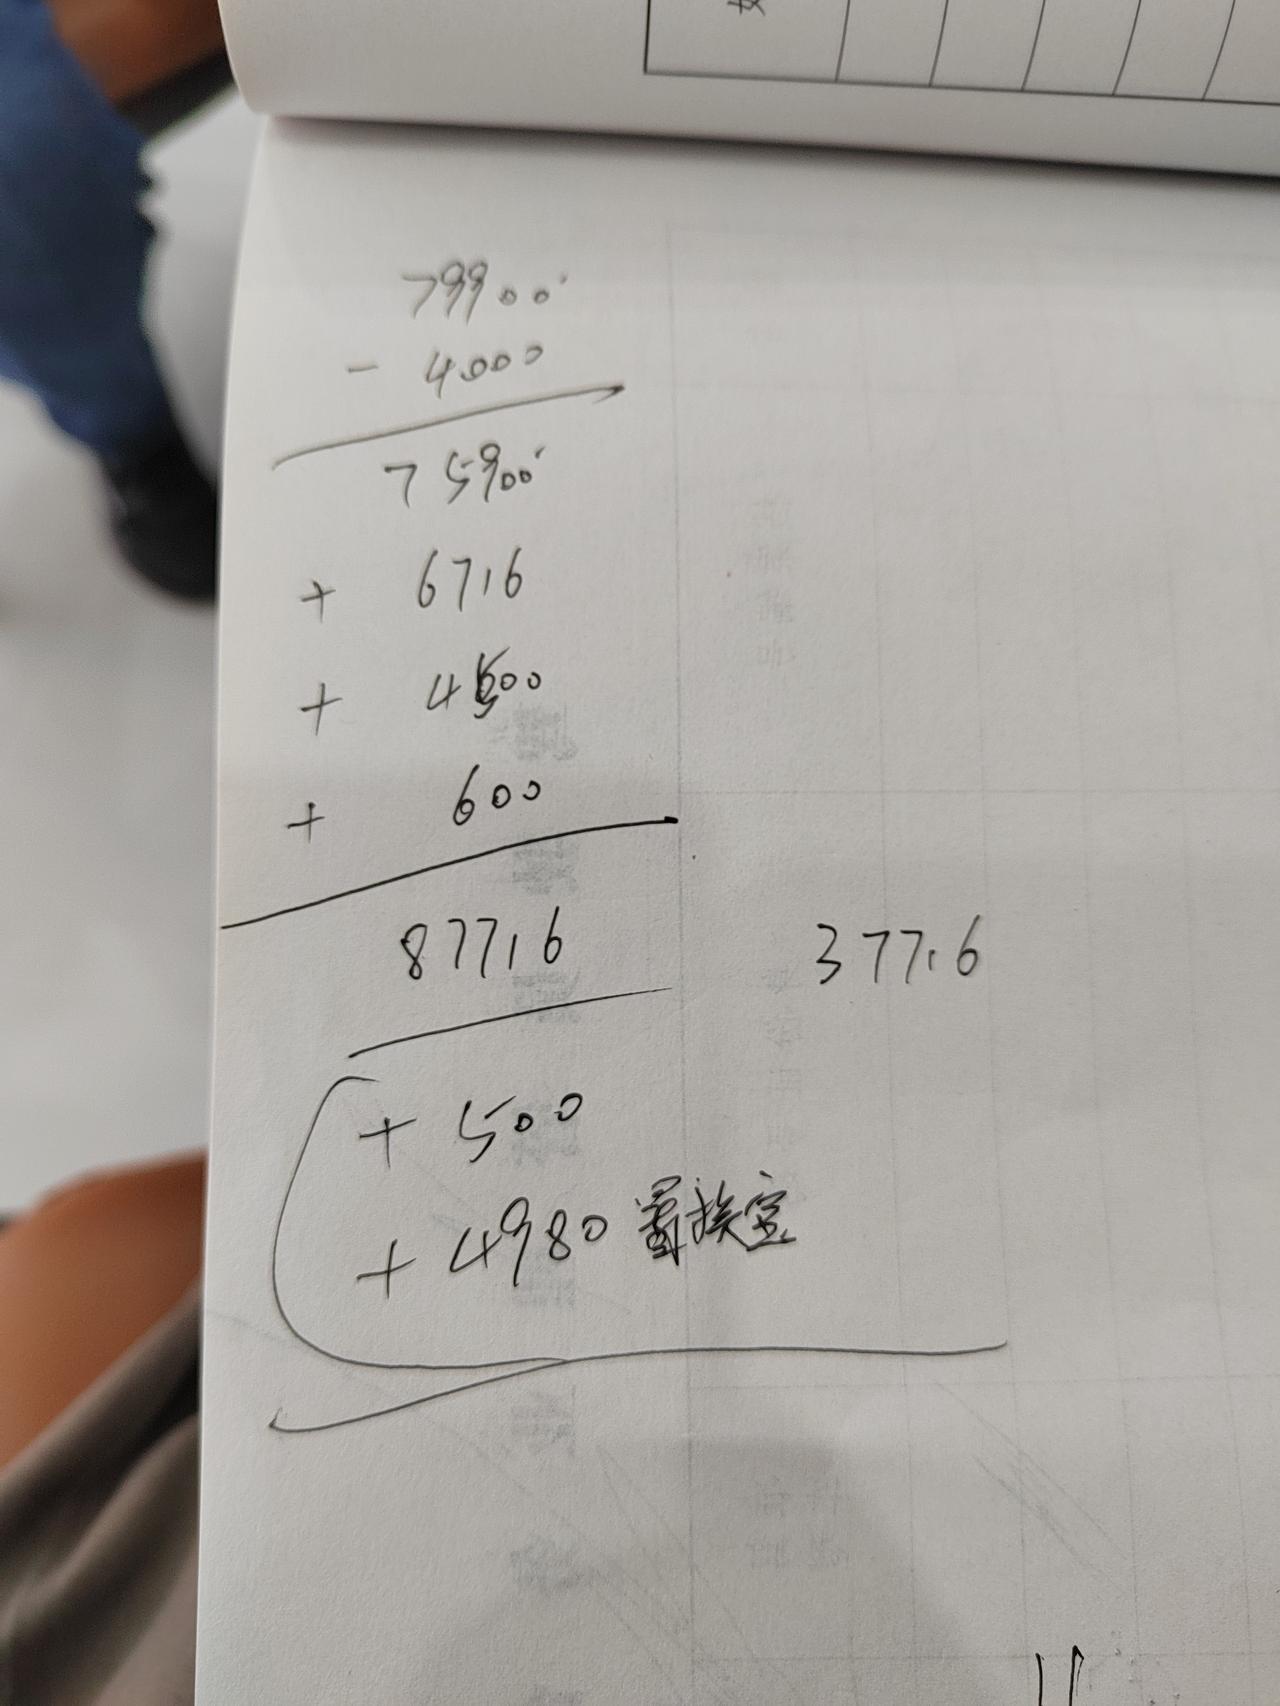 79900
- 4000
75900
+ 6716
+ 4500
+ 600
87716 37716
+ 500
+ 4980 置换